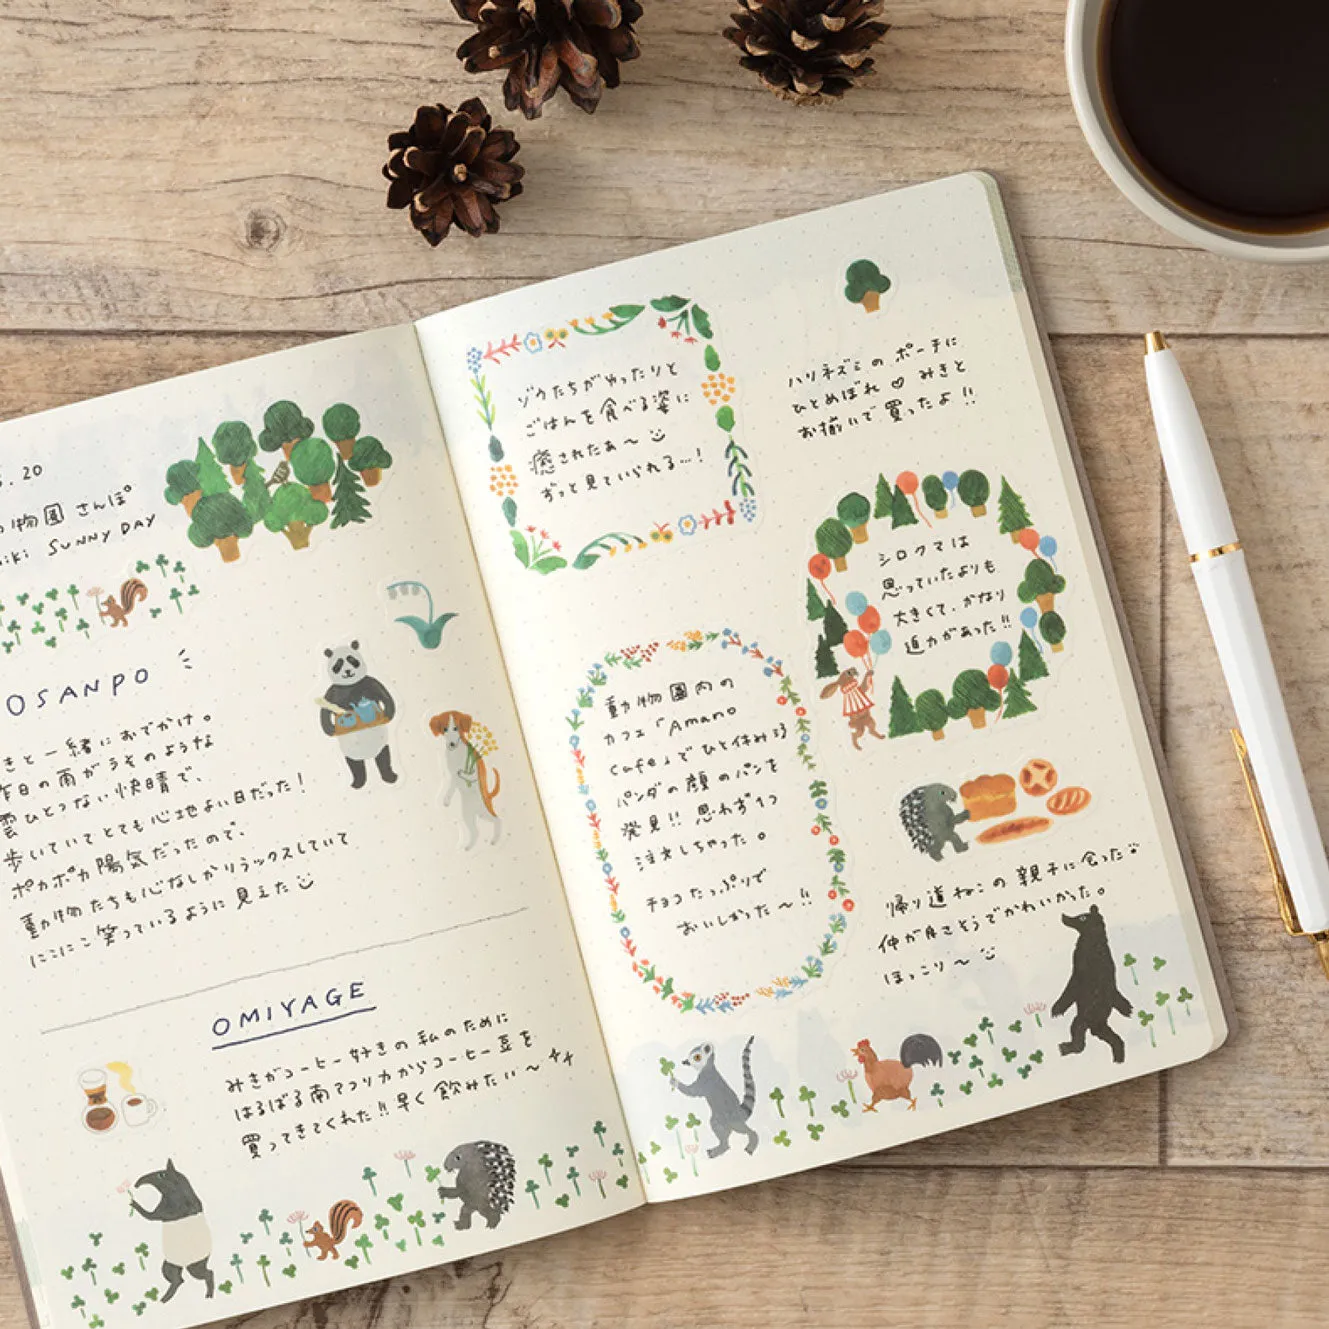 . 20
物園 さんぽ
iki SUNNY DAY
OSANPO
きと一緒におでかけ。
昨日の雨がうそのような
雲ひとつない快晴で、
歩いていてとても心地よい日だった!
ポカポカ陽気だったので、
動物たちも心なしかリラックスしていて
にこにこ笑っているように見えた
OMIYAGE
みきがコーヒー好きの私のために
はるばる南アフリカからコーヒー豆を
買ってきてくれた!!早く飲みたい〜
ゾウたちがゆったりと
ごはんを食べる姿に
癒されたぁ〜
ずっと見ていられる…!
ハリネズミのポーチに
ひとめぼれ♡みきと
お揃いで買ったよ!!
シロクマは
思っていたよりも
大きくて、かなり
迫力があった!!
動物園内の
カフェ「Amano
cafe」でひと休み
パンダの顔のパンを
発見!! 思わず1つ
注文しちゃった。
チョコたっぷりで
おいしかった〜!!
帰り道ねこの親子に会った
仲が良さそうでかわいかった。
ほっこり〜